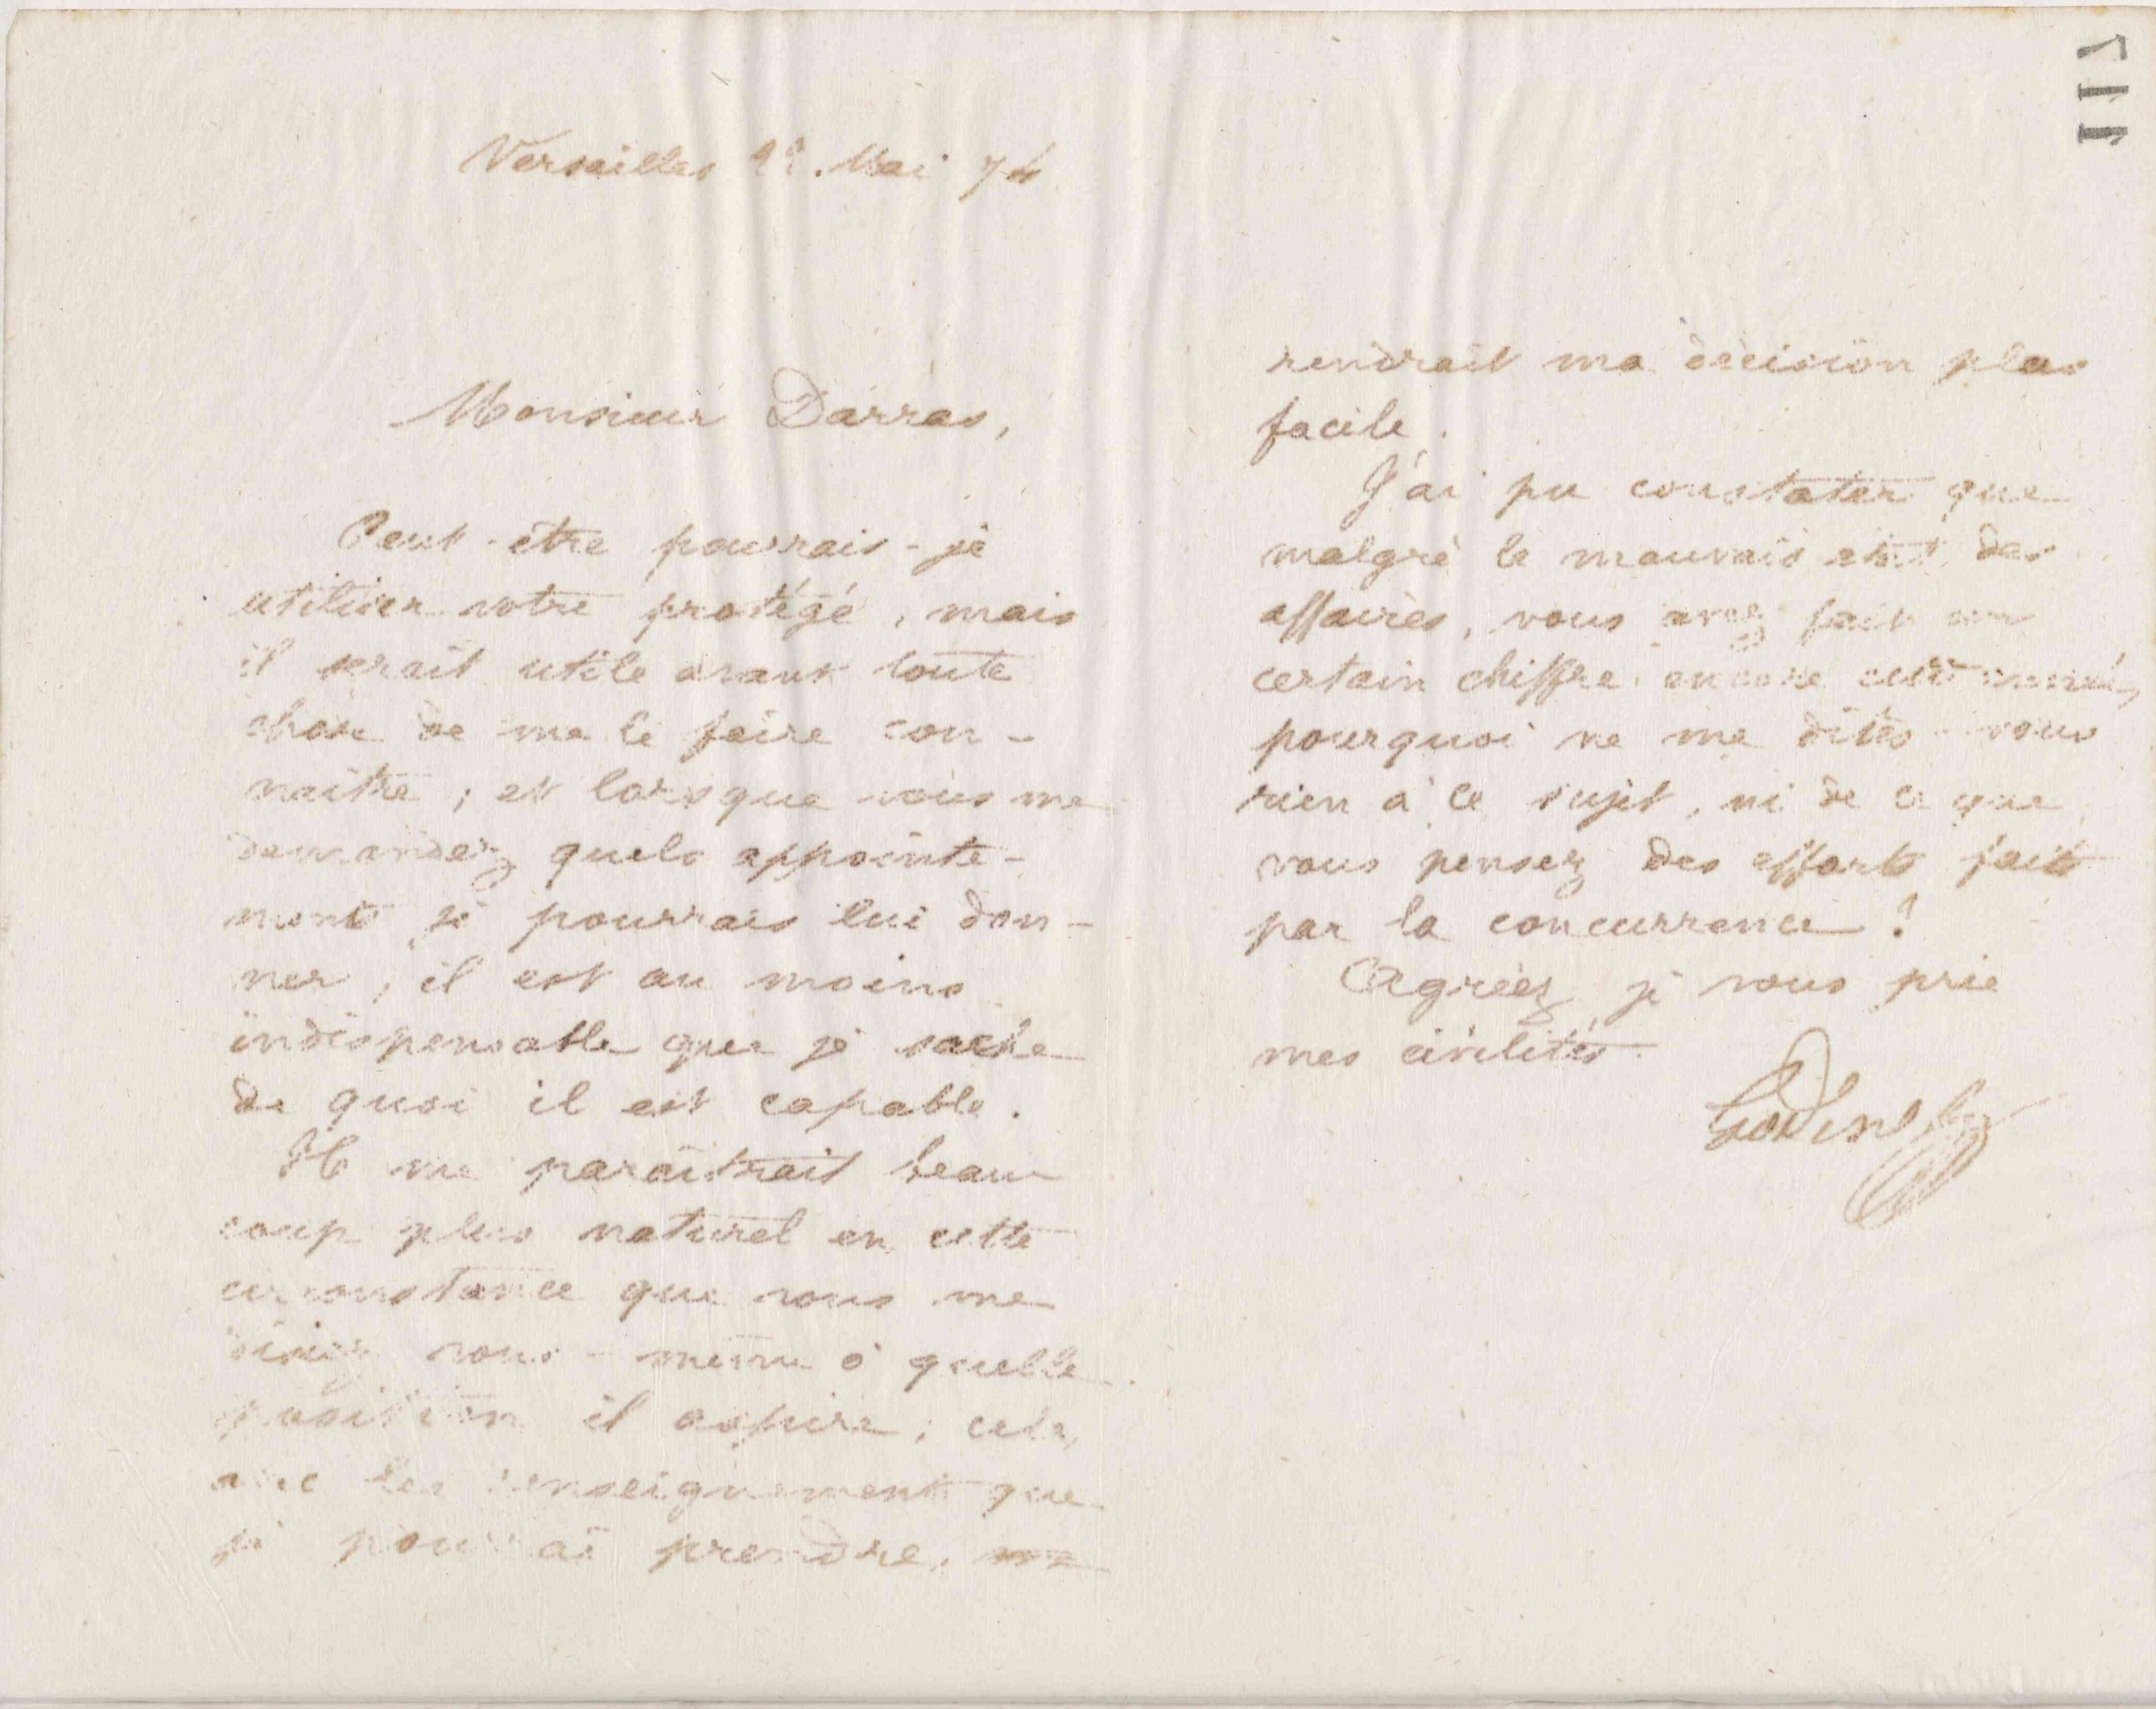 Versailles Mai 74
Monsieur Darras,
Peut-être pourrais-je
utiliser votre protégé, mais
il serait utile avant toute
chose de me le faire con-
naître ; et lorsque vous me
demandez quels appointe-
ments je pourrais lui don-
ner, il est au moins
indispensable que je sache
de quoi il est capable.
Il me paraîtrait beau
coup plus naturel en cette
circonstance que vous me
disiez vous-même à quelle
position il aspire ; cela,
avec les renseignements que
je pourrai prendre, me
rendrait ma décision plus
facile.
J'ai pu constater que
malgré le mauvais état des
affaires, vous avez fait un
certain chiffre encore cette année,
pourquoi ne me dites-vous
rien à ce sujet, ni de ce que
vous pensez des efforts faits
par la concurrence ?
Agréez je vous prie
mes civilités.
Godin
117